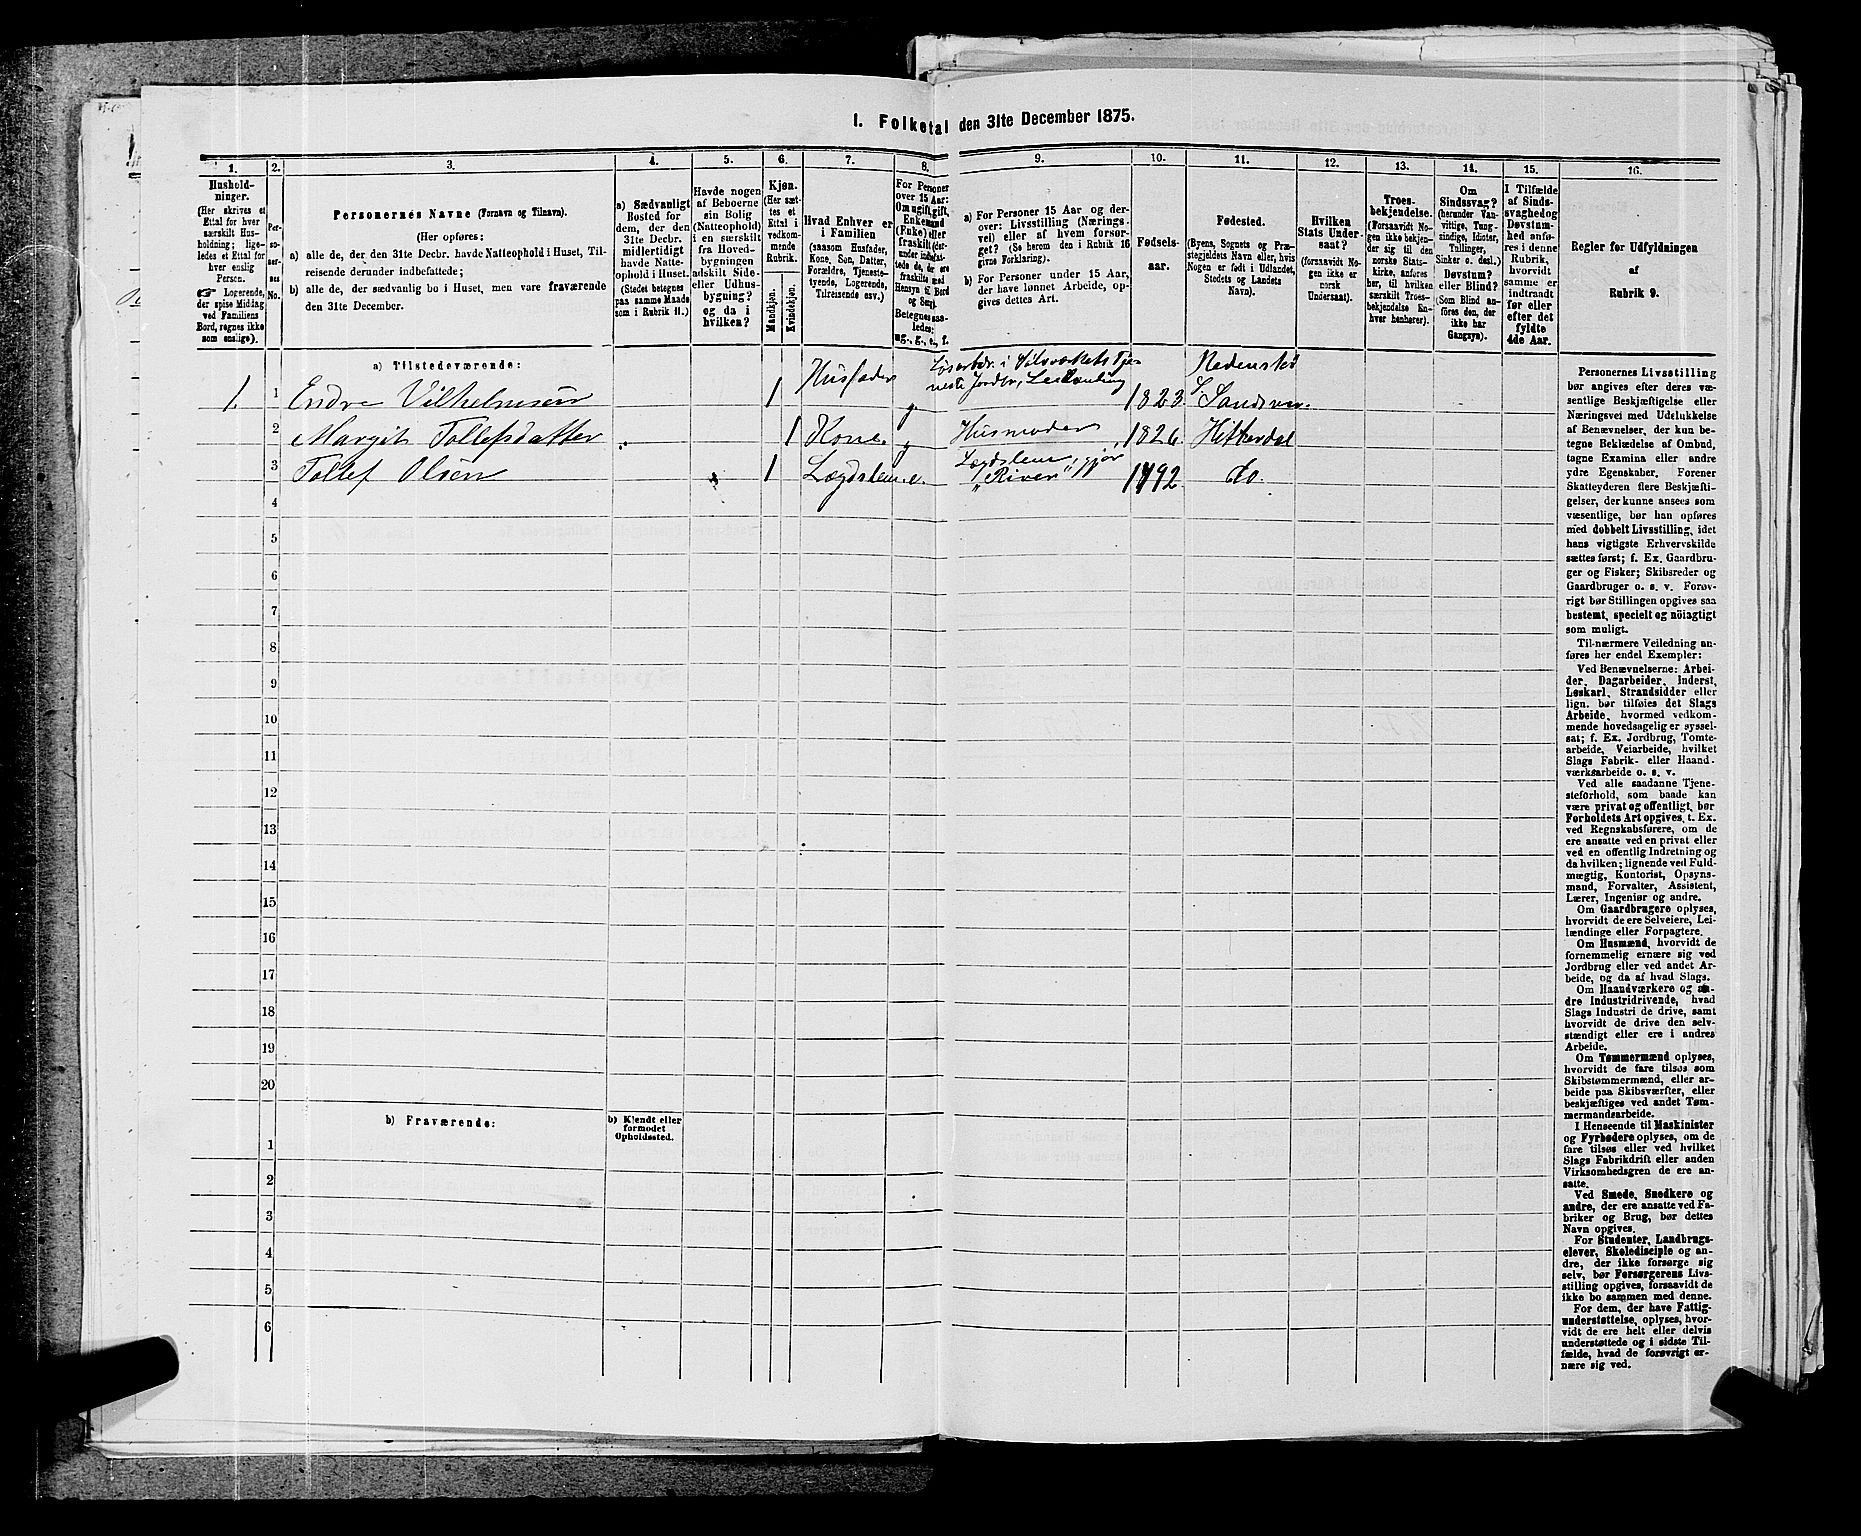 I. Folketal den 31te December 1875.
1. 2. 3. 4. 5. 6. 7. 8. 9. 10. 11. 12. 13. 14. 15. 16.
Hushold-
ninger.
(Her skrives et
Ettal for hver
særskilt Hus-
holdning; lige-
ledes et Ettal for
hver enslig
Person.
☞ Logerende,
der spise Middag
ved Familiens
Bord, regnes ikke
som enslige).
Per-
so-
ner-
nes
No.
Personernes Navne (Fornavn og Tilnavn).
(Her opføres:
a) alle de, der den 31te Decbr. havde Natteophold i Huset, Til-
reisende derunder indbefattede;
b) alle de, der sædvanlig bo i Huset, men vare fraværende
den 31te December.
a) Sædvanligt
Bosted for
dem, der den
31te Decbr.
midlertidigt
havde Natte-
ophold i Huset.
(Stedet betegnes
paa samme Maade
som i Rubrik 11.)
Havde nogen
af Beboerne
sin Bolig
(Natteophold)
i en særskilt
fra Hoved-
bygningen
adskilt Side-
eller Udhus-
bygning?
og da i
hvilken?
Kjøn.
(Her sæt-
tes et
Ettal i
vedkom-
mende
Rubrik.
Mandkjøn.
Kvindekjøn.
Hvad Enhver er
i Familien
(saasom Husfader,
Kone, Søn, Datter,
Forældre, Tjeneste-
tyende, Logerende,
Tilreisende osv.)
For Personer
over 15 Aar:
Om ugift, gift,
Enkemand
(Enke) eller
fraskilt (der-
under indbefat-
tede de, der ere
fraskilte med
Hensyn til Bord
og Seng).
Betegnes saa-
ledes:
ug., g., e., f.
a) For Personer 15 Aar og der-
over: Livsstilling (Nærings-
vei) eller af hvem forsør-
get? (Se herom den i Rubrik 16
givne Forklaring).
b) For Personer under 15 Aar,
der have lønnet Arbeide, op-
gives dettes Art.
Fødsels-
aar.
Fødested.
(Byens, Sognets og Præ-
stegjeldets Navn, eller hvis
Nogen er født i Udlandet,
Stedets og Landets
Navn).
Hvilken
Stats Under-
saat?
(forsaavidt No-
gen ikke er
norsk
Undersaat).
Troes-
bekjendelse.
(Forsaavidt No-
gen ikke bekjen-
der sig til den
norske Stats-
kirke, anføres
her, til hvilken
særskilt Troes-
bekjendelse En-
hver henhører).
Om
Sindssvag?
(herunder Van-
vittige, Tung-
sindige, Idioter,
Tullinger,
Sinker o. desl.)
Døvstum?
eller Blind?
(Som Blind an-
føres den, der
ikke har
Gangsyn).
I Tilfælde
af Sinds-
svaghed og
Døvstum-
hed anfø-
res i denne
Rubrik,
hvorvidt
samme er
indtraadt
før eller
efter det
fyldte
4de Aar.
Regler for Udfyldningen
af
Rubrik 9.
a) Tilstedeværende:
1. 1 Endre Vilhelmsen 1 Husfader g. i Sølvværkets Tje-
neste 1823. S. Sandsvær
2 Margit Tollefsdatter 1 Kone g. Husmoder 1826. Hitterdal
3 Tollef Olsen 1 Lægdslem e. Lægdslem, gjør
"River" 1792. do.
4
5
6
7
8
9
10
11
12
13
14
15
16
17
18
19
20
b) Fraværende:
b) Kjendt eller
formodet
Opholdssted.
1
2
3
4
5
6
Personernes Livsstilling
bør angives efter deres væ-
sentlige Beskjæftigelse eller
Næringsvei med Udelukkelse
af Benævnelser, der kun be-
tegne Beklædelse af Ombud,
tagne Examina eller andre
ydre Egenskaber. Forener
Skatteyderen flere Beskjæfti-
gelser, der kunne ansees som
væsentlige, bør han opføres
med dobbelt Livsstilling, idet
hans vigtigste Erhvervskilde
sættes først; f. Ex. Gaardbru-
ger og Fisker; Skibsreder og
Gaardbruger o. s. v. Forøv-
rigt bør Stillingen opgives saa
bestemt, specielt og nöiagtigt
som muligt.
Til nærmere Veiledning an-
føres her endel Exempler:
Ved Benævnelserne: Arbei-
der, Dagarbeider, Inderst,
Løskarl, Strandsidder eller
lign. bør tilføies det Slags
Arbeide, hvormed vedkom-
mende hovedsagelig er syssel-
sat; f. Ex. Jordbrug, Tomte-
arbeide, Veiarbeide, hvilket
Slags Fabrik- eller Haand-
værksarbeide o. s. v.
Ved alle saadanne Tjene-
steforhold, som baade kan
være privat og offentligt, bør
Forholdets Art opgives, t. Ex.
ved Regnskabsførere, om de
ere ansatte ved en privat eller
ved en offentlig Indretning og
da hvilken; lignende ved Fuld-
mægtig, Kontorist, Opsyns-
mand, Forvalter, Assistent,
Lærer, Ingeniør og andre.
Om Gaardbrugere oplyses,
hvorvidt de ere Selveiere, Lei-
lændinge eller Forpagtere.
Om Husmænd, hvorvidt de
fornemmelig ernære sig ved
Jordbrug eller ved andet Ar-
beide, og da af hvad Slags.
Om Haandværkere og an-
dre Industridrivende, hvad
Slags Industri de drive, samt
hvorvidt de drive den selv-
stændigt eller ere i andres
Arbeide.
Om Tømmermænd oplyses,
hvorvidt de fare tilsøs som
Skibstømmermænd, eller ar-
beide paa Skibsværfter, eller
beskjæftiges ved andet Tøm-
mermandsarbeide.
I Henseende til Maskinister
og Fyrbødere oplyses, om de
fare tilsøs eller ved hvilket
Slags Fabrikdrift eller anden
Virksomhedsgren de ere an-
satte.
Ved Smede, Snedkere og
andre, der ere ansatte ved Fa-
briker og Brug, bør dettes
Navn opgives.
For Studenter, Landbrugs-
elever, Skoledisciple og an-
dre, der ikke forsørge sig
selv, bør Forsørgerens Livs-
stilling opgives, forsaavidt de
ikke bo sammen med denne.
For dem, der have Fattig-
understøttelse, oplyses, hvor-
vidt de ere helt eller delvis
understøttede og i sidste Til-
fælde, hvad de forøvrigt er-
nære sig ved.